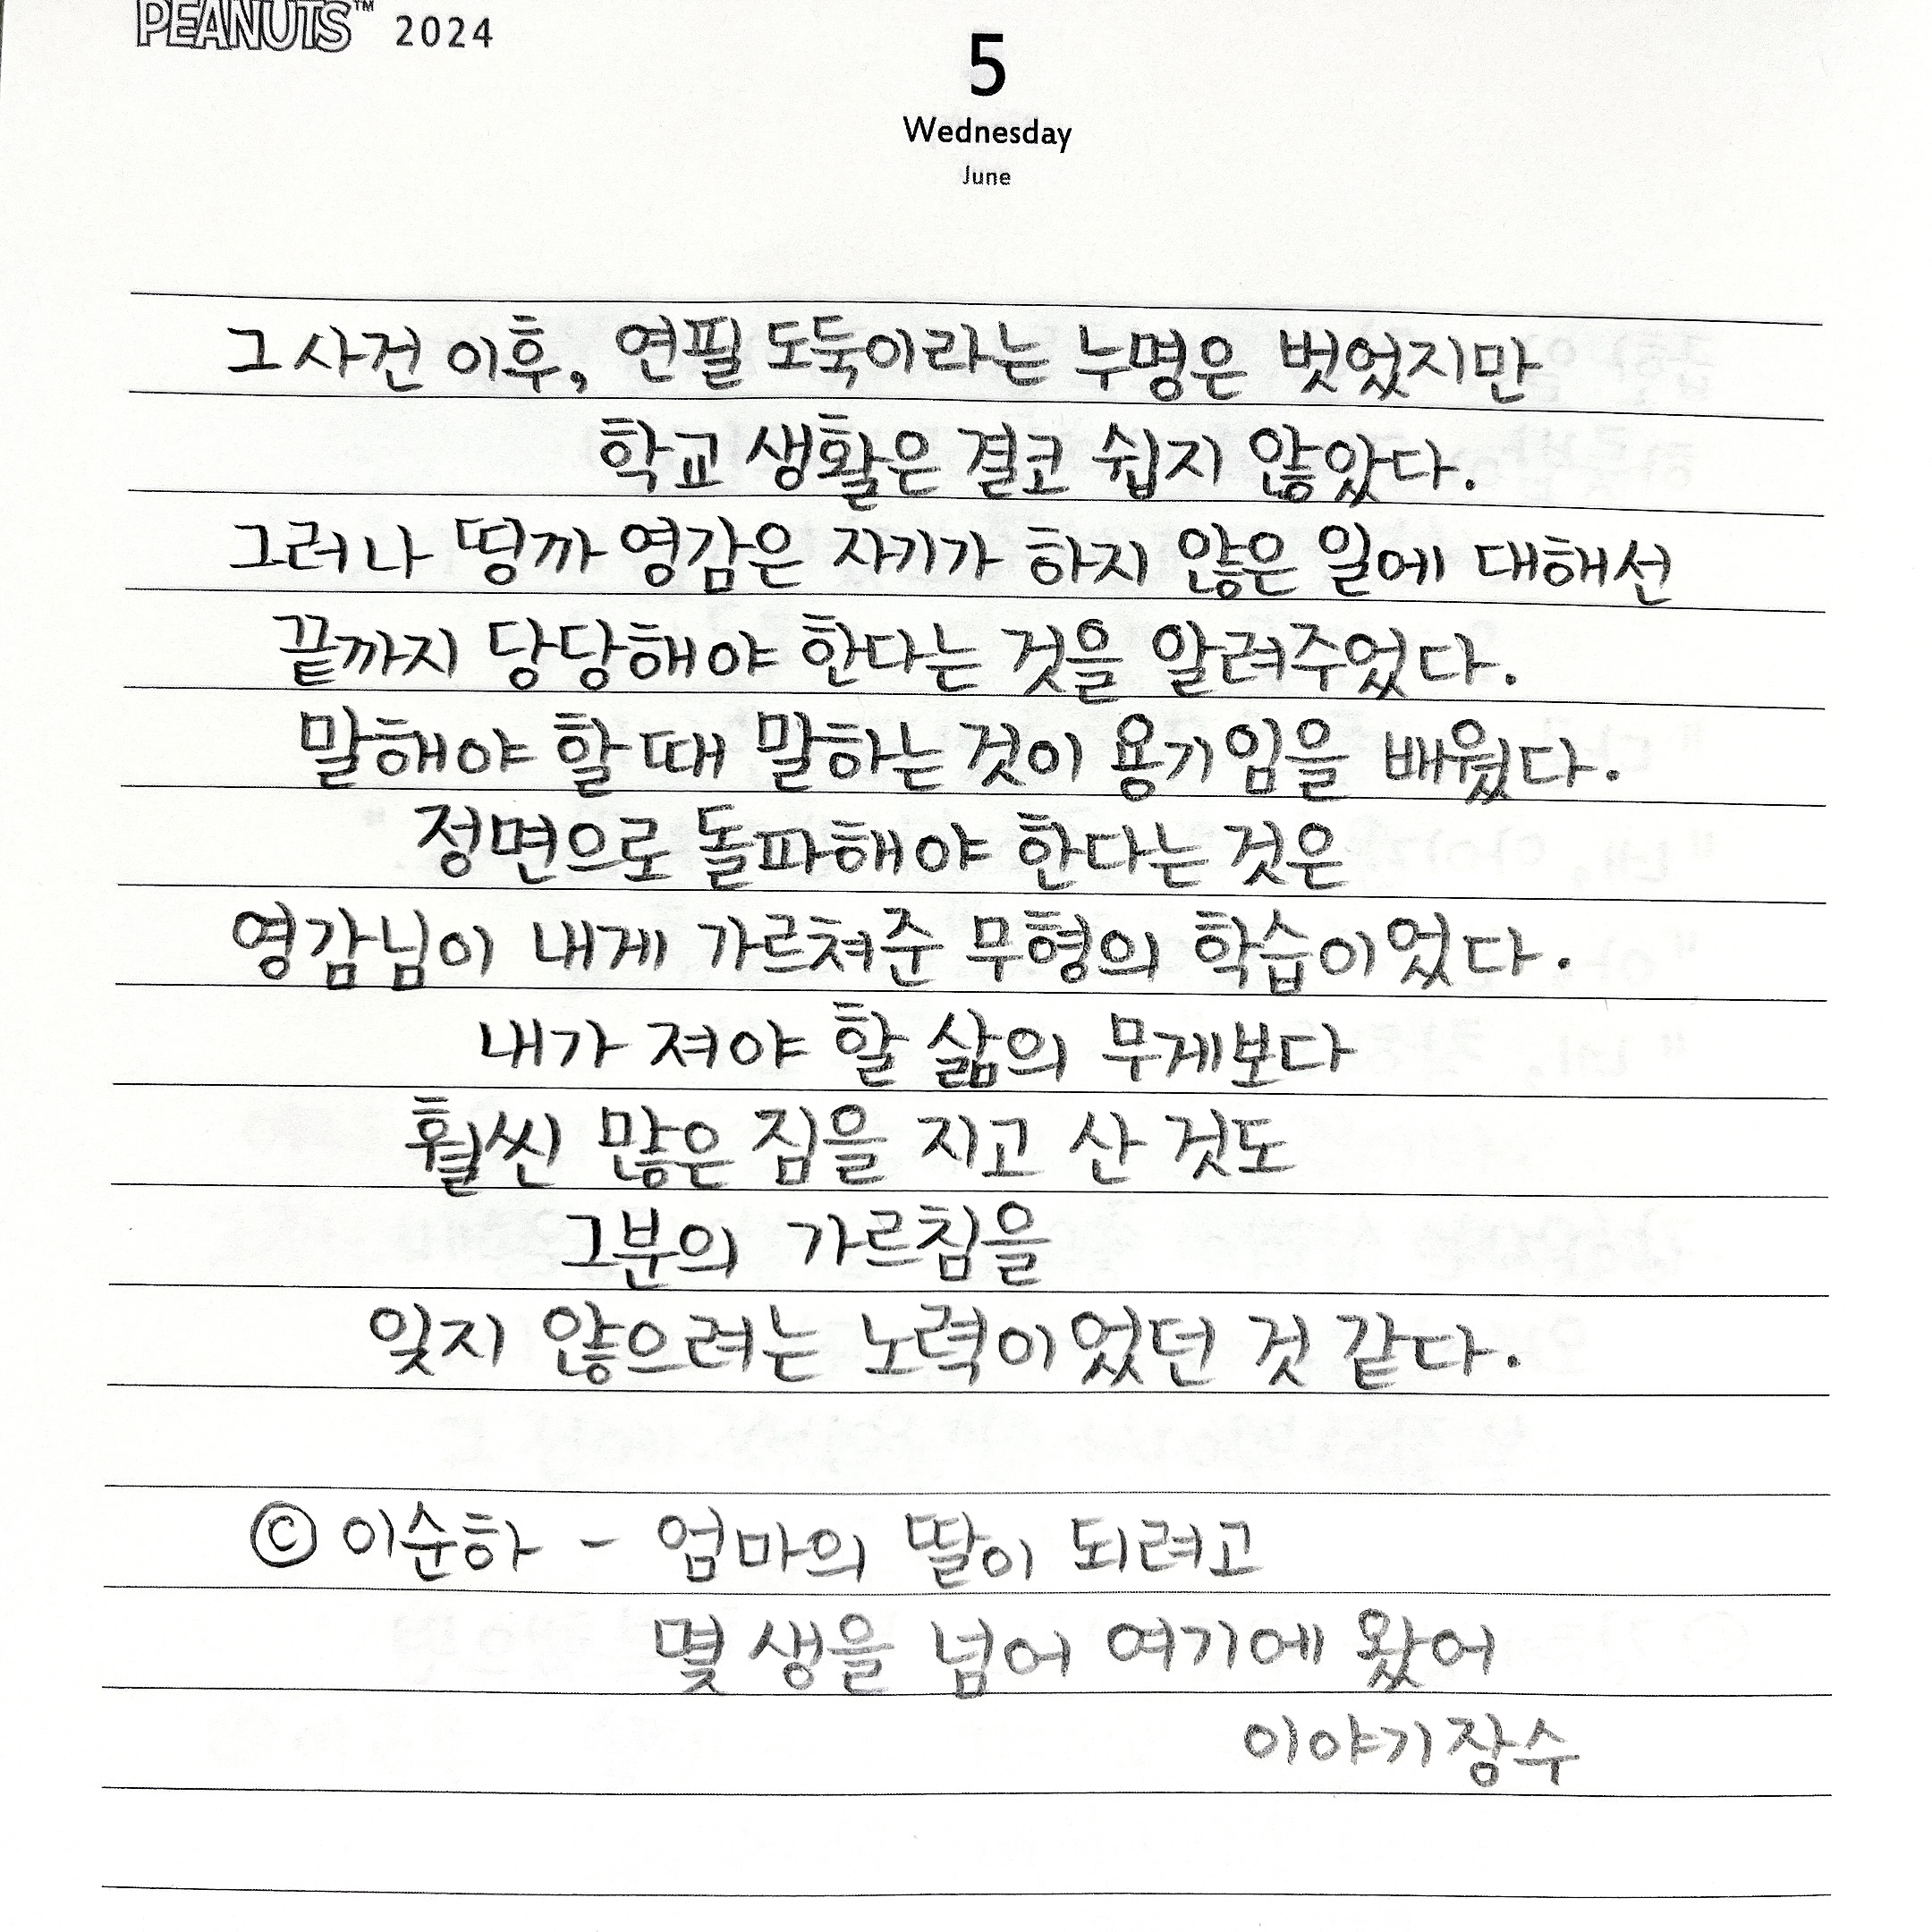 PEANUTS™ 2024
5
Wednesday
June
그 사건 이후, 연필 도둑이라는 누명은 벗었지만
학교 생활은 결코 쉽지 않았다.
그러나 띵까 영감은 자기가 하지 않은 일에 대해선
끝까지 당당해야 한다는 것을 알려주었다.
말해야 할 때 말하는 것이 용기임을 배웠다.
정면으로 돌파해야 한다는 것은
영감님이 내게 가르쳐준 무형의 학습이었다.
내가 져야 할 삶의 무게보다
훨씬 많은 짐을 지고 산 것도
그분의 가르침을
잊지 않으려는 노력이었던 것 같다.
© 이순하 - 엄마의 딸이 되려고
몇 생을 넘어 여기에 왔어
이야기장수